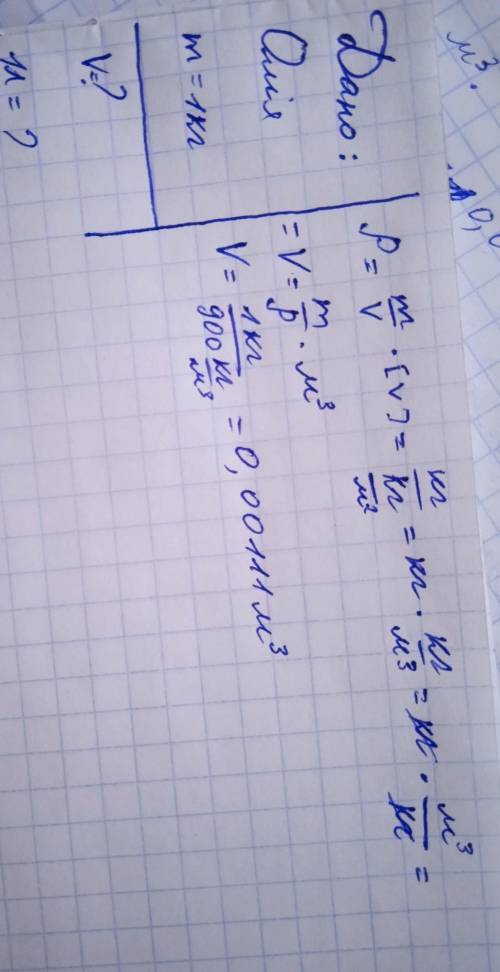 м³.
0,0
Дано:
Олія
m = 1кг
V = ?
n = ?
ρ = m/V · [V] = кг/(кг/м²) = кг · кг/м³ = кг · м³/кг =
= V = m/ρ · м³
V = 1кг/(900 кг/м³) = 0,00111м³